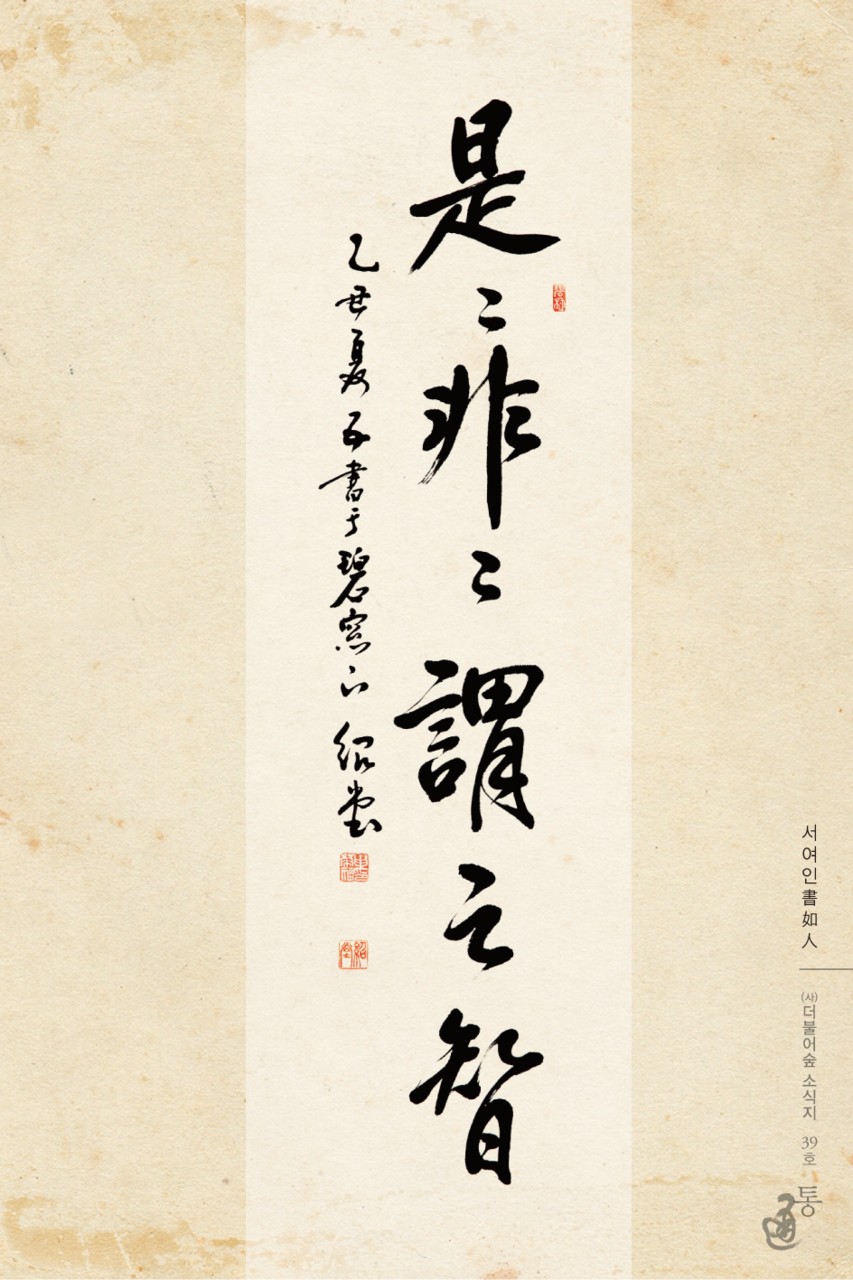 是〻非〻謂之智
乙丑夏又書于碧窓下 紹堂
서여인書如人
(사)더불어숲 소식지 39호
통
通